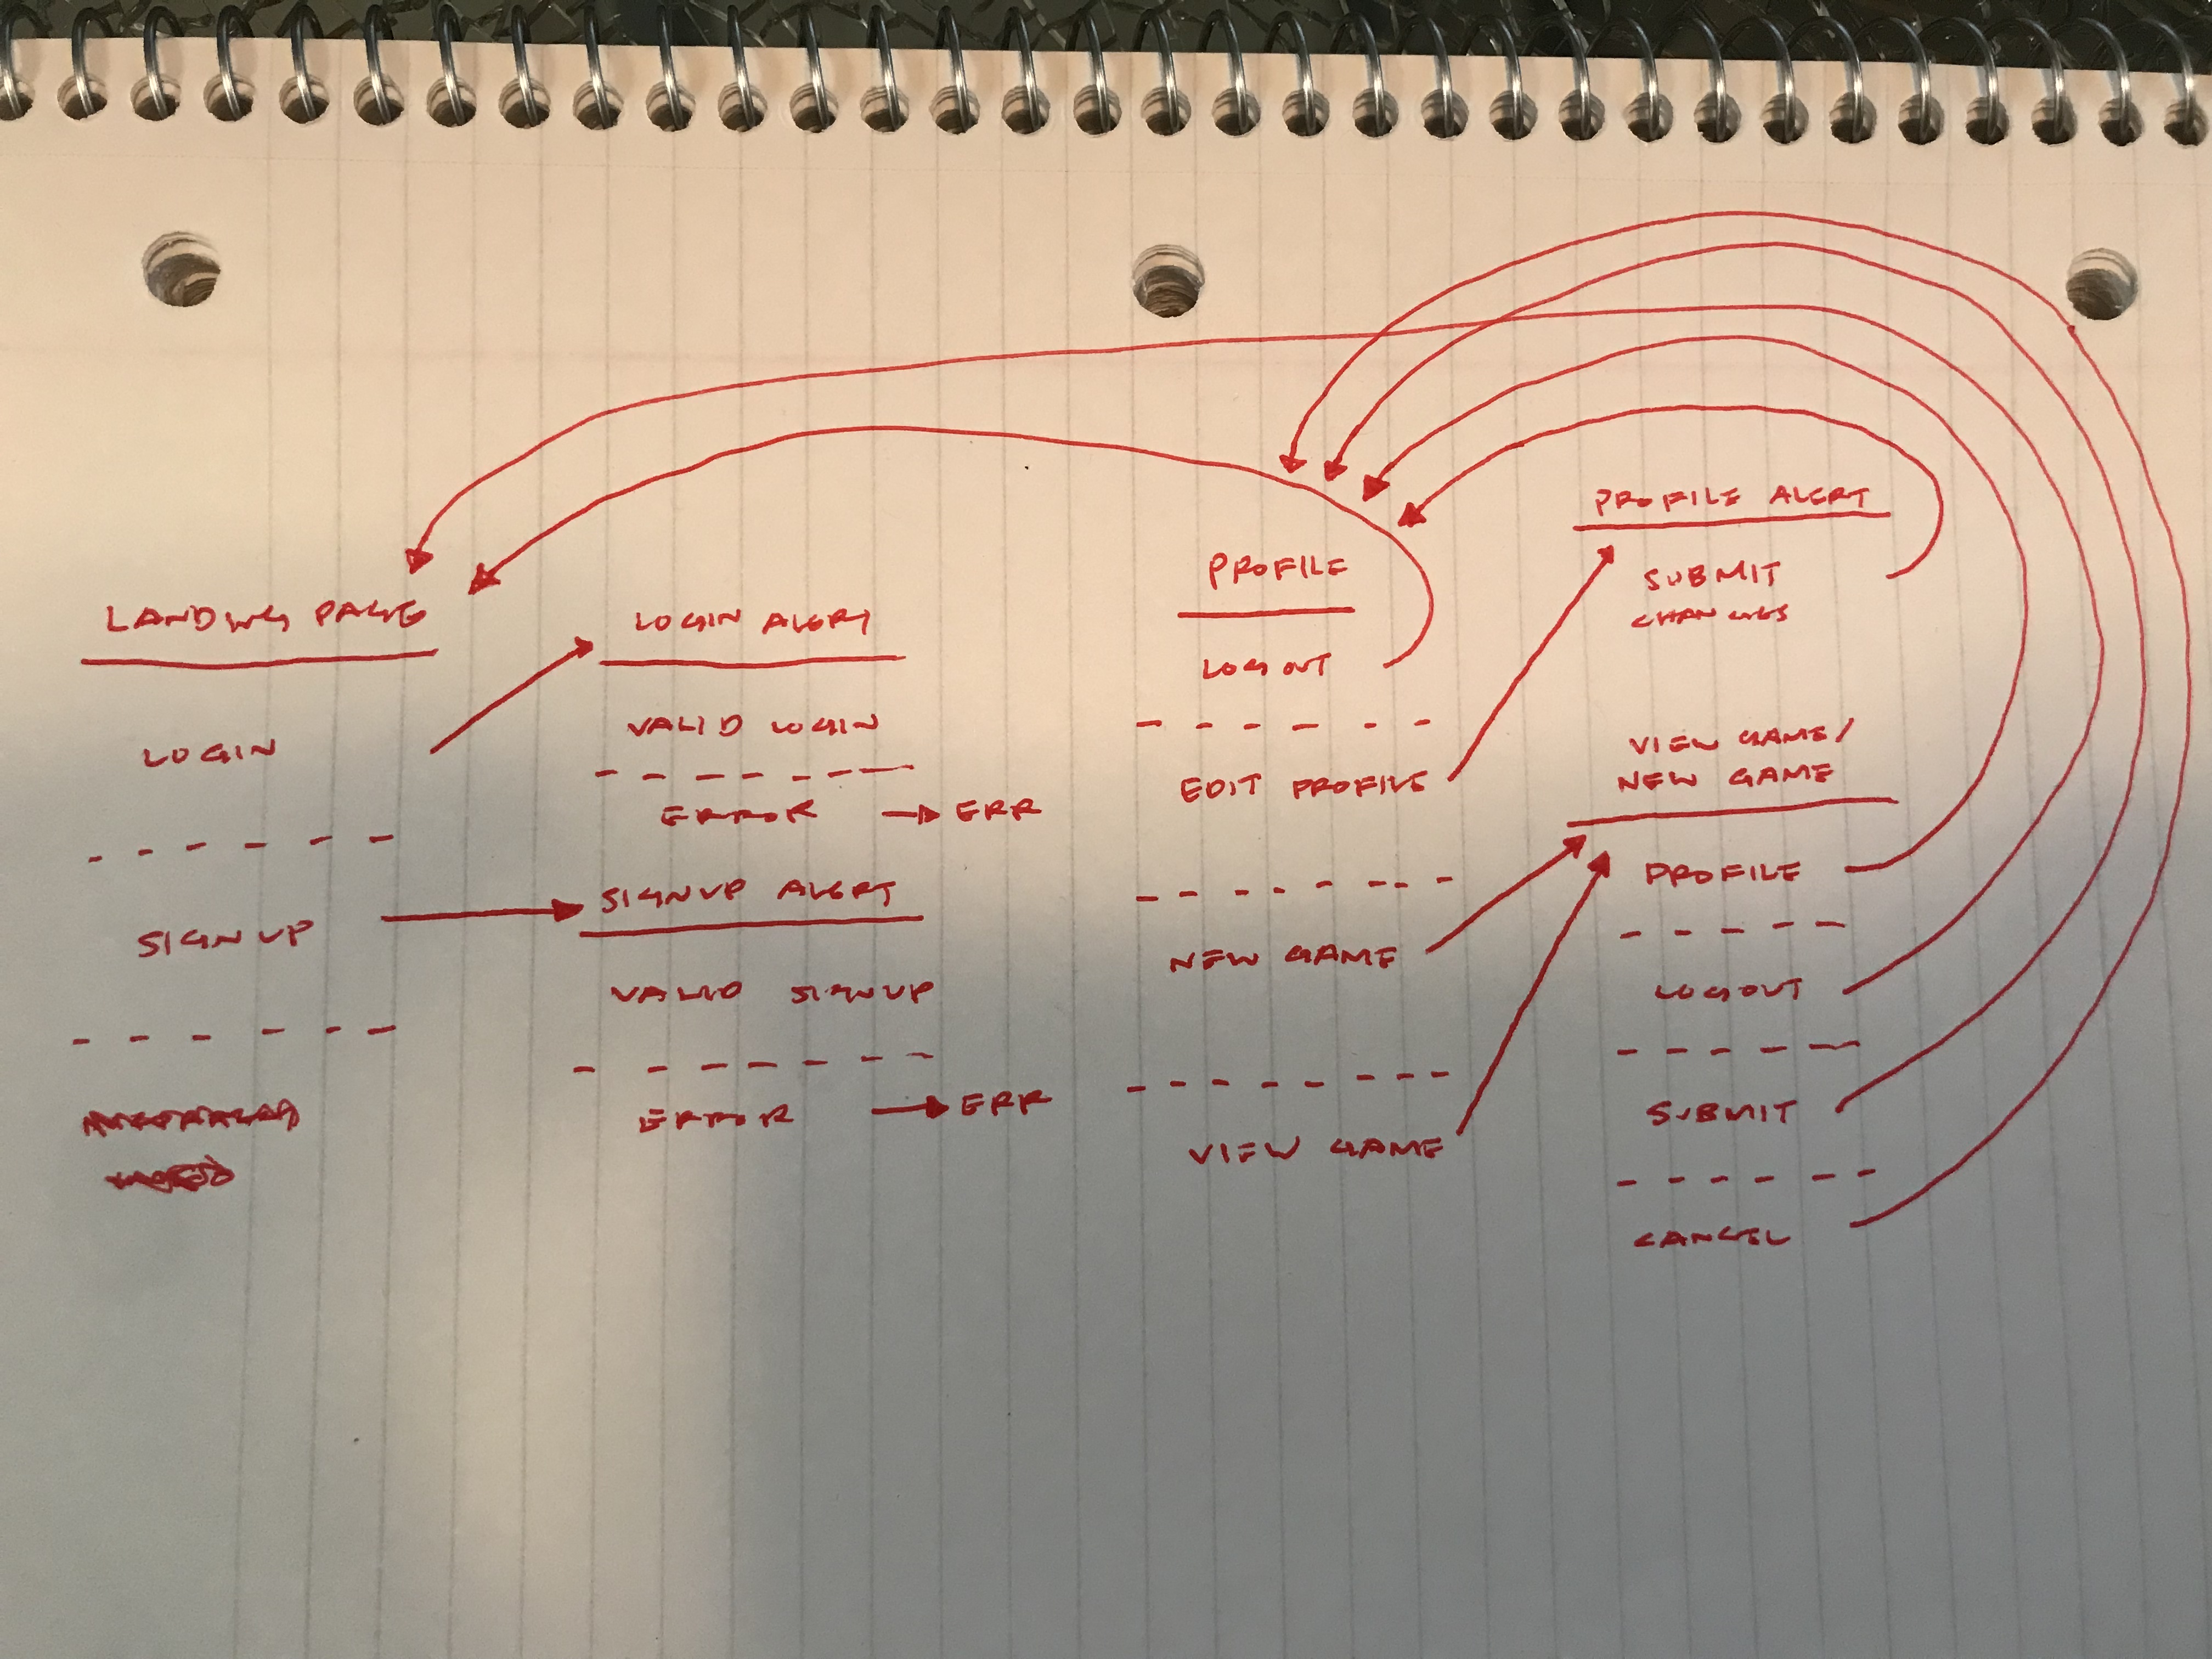 LANDING PAGE
LOGIN
SIGN UP
LOGIN ALERT
VALID LOGIN
ERROR → ERR
SIGNUP ALERT
VALID SIGNUP
ERROR → ERR
PROFILE
LOGOUT
EDIT PROFILE
NEW GAME
VIEW GAME
PROFILE ALERT
SUBMIT
CHANGES
VIEW GAME/
NEW GAME
PROFILE
LOGOUT
SUBMIT
CANCEL